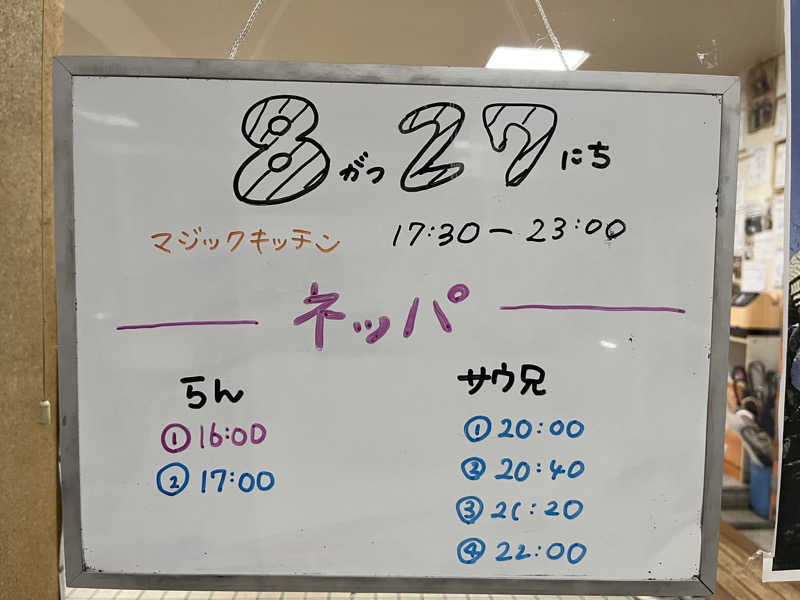 8がつ27にち
マジックキッチン 17:30-23:00
ネッパ
らん サウ兄
① 16:00 ① 20:00
② 17:00 ② 20:40
③ 21:20
④ 22:00